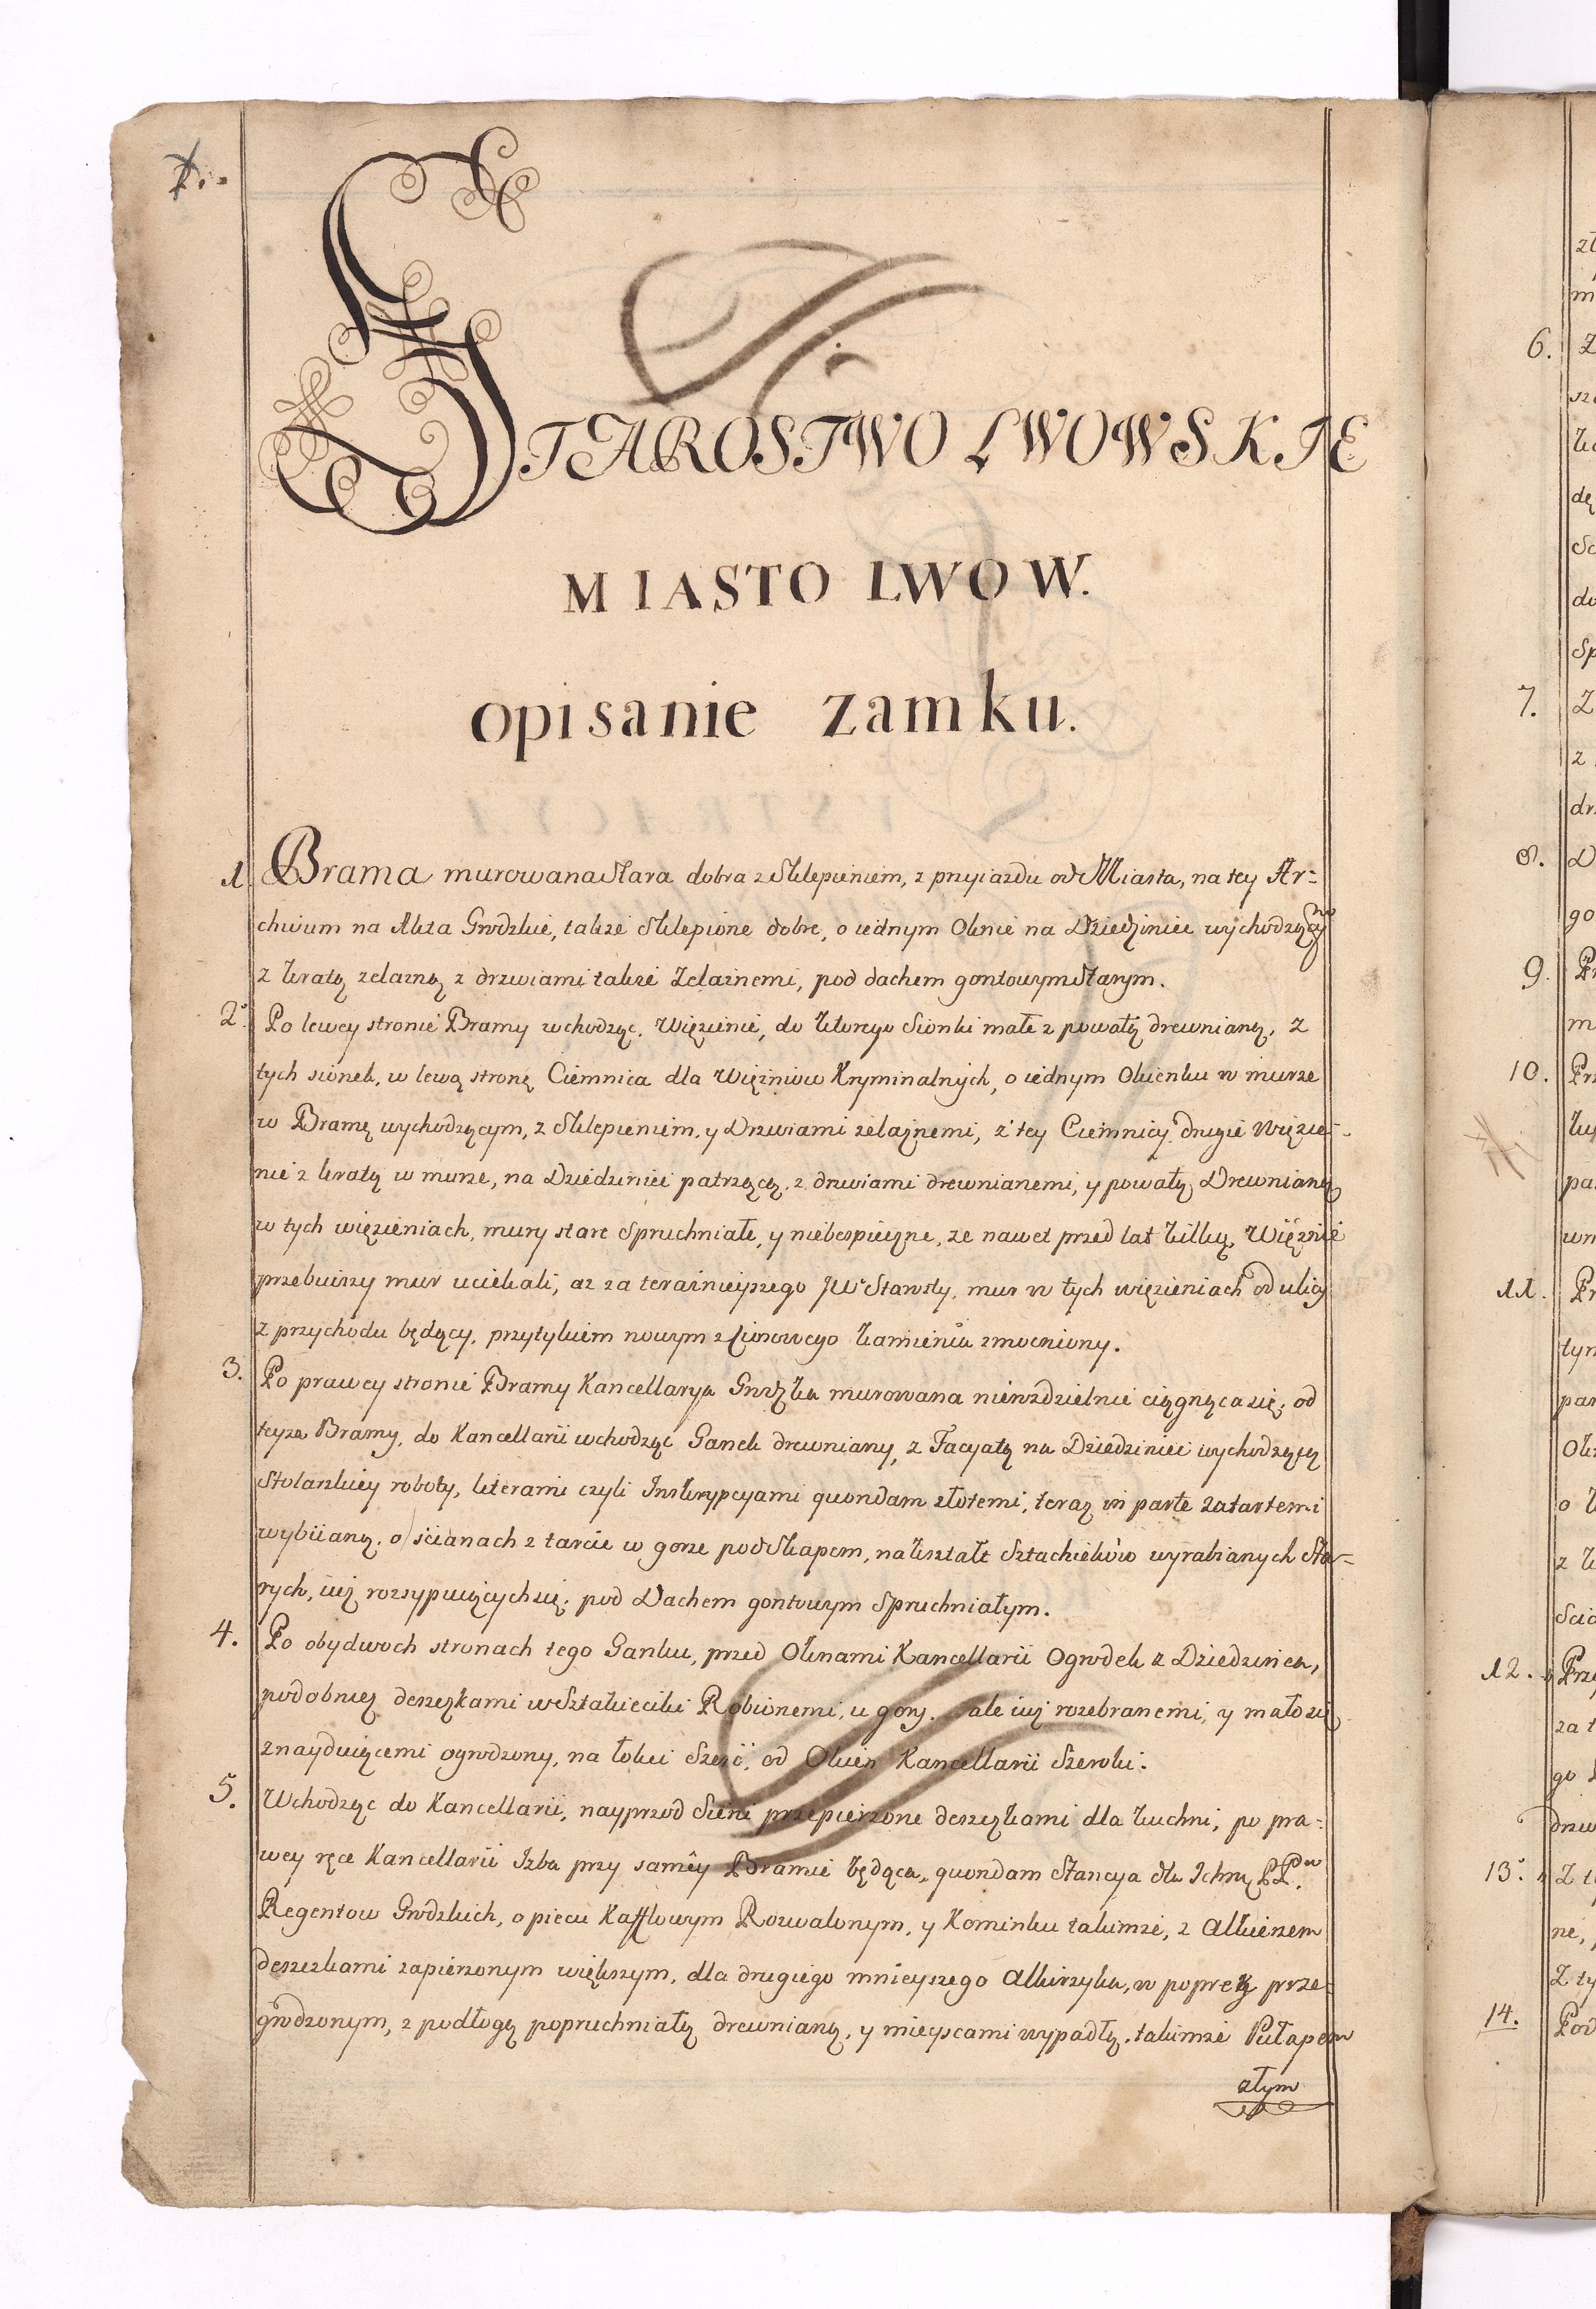 1.
STAROSTWO LWOWSKIE
MIASTO LWOW.
opisanie zamku.
1. Brama murowana stara dobra z Sklepieniem, z przyiazdu od Miasta, na tey Ar=
chivum na Akta Grodzkie, takze sklepione dobre, o iednym Oknie na Dziedziniec wychodzący
z kratą zelazną z drzwiami także Zelaznemi, pod dachem gontowym starym.
2. Po lewey stronie Bramy wchodząc, Więzienie, do ktorego Sionki małe z powałą drewnianą, z
tych sionek, w lewą stronę Ciemnica dla Więzniow Kryminalnych, o iednym Okienku w murze
w Bramę wychodzącym, z Sklepieniem, y Drzwiami zelaznemi, z tey Ciemnicy drugie Więzie=
nie z kratą w murze, na Dziedziniec patrzącą, z drzwiami drewnianemi, y powałą Drewnianą
w tych więzieniach, mury stare Spruchniałe, y niebespieczne, ze nawet przed lat kilką, Więznie
przebiwszy mur uciekali, az za teraznieyszego JW Starosty, mur w tych więzieniach od ulicy
z przychodu będący, przytykiem nowym z Ciosowego kamienia zmocniony.
3. Po prawey stronie Bramy Kancellarya Grodzka murowana nierozdzielnie ciągnąca się, od
teyze Bramy, do Kancellarii wchodząc Ganek drewniany, z Facyatą na Dziedziniec wychodzącą
Stolarskiey roboty, literami czyli Inskrypcyami quondam złotemi, teraz in parte zatartemi
wybiianą, o ścianach z tarcic w gorze pod Okapem, na kształt Sztachetków wyrabianych Sta=
rych, iuż rozsypuiących się, pod Dachem gontowym Spruchniałym.
4. Po obydwoch stronach tego Ganku, przed Oknami Kancellarii Ogrodek z Dziedzinca,
podobnież deszczkami w Sztakieciki Robionemi, u gory, ale iuż rozebranemi, y mało się
znayduiącemi ogrodzony, na łokci Sześć, od Okien Kancellarii Szeroki.
5. Wchodząc do Kancellarii, nayprzod Sieni przepierzone deszczkami dla kuchni, po pra=
wey ręce Kancellarii Izba przy samey Bramie będąca, quondam Stancya dla Ichm PP.
Regentow Grodzkich, o piecu Kafflowym Rozwalonym, y Kominku takimze, z Alkierzem
deszczkami zapierzonym większym, dla drugiego mnieyszego Alkirzyka, w poprek prze=
grodzonym, z podłogą popruchniałą drewnianą, y mieyscami wypadłą, takimze Pułapem
złym
6.
7.
8.
9.
10.
11.
12.
13.
14.